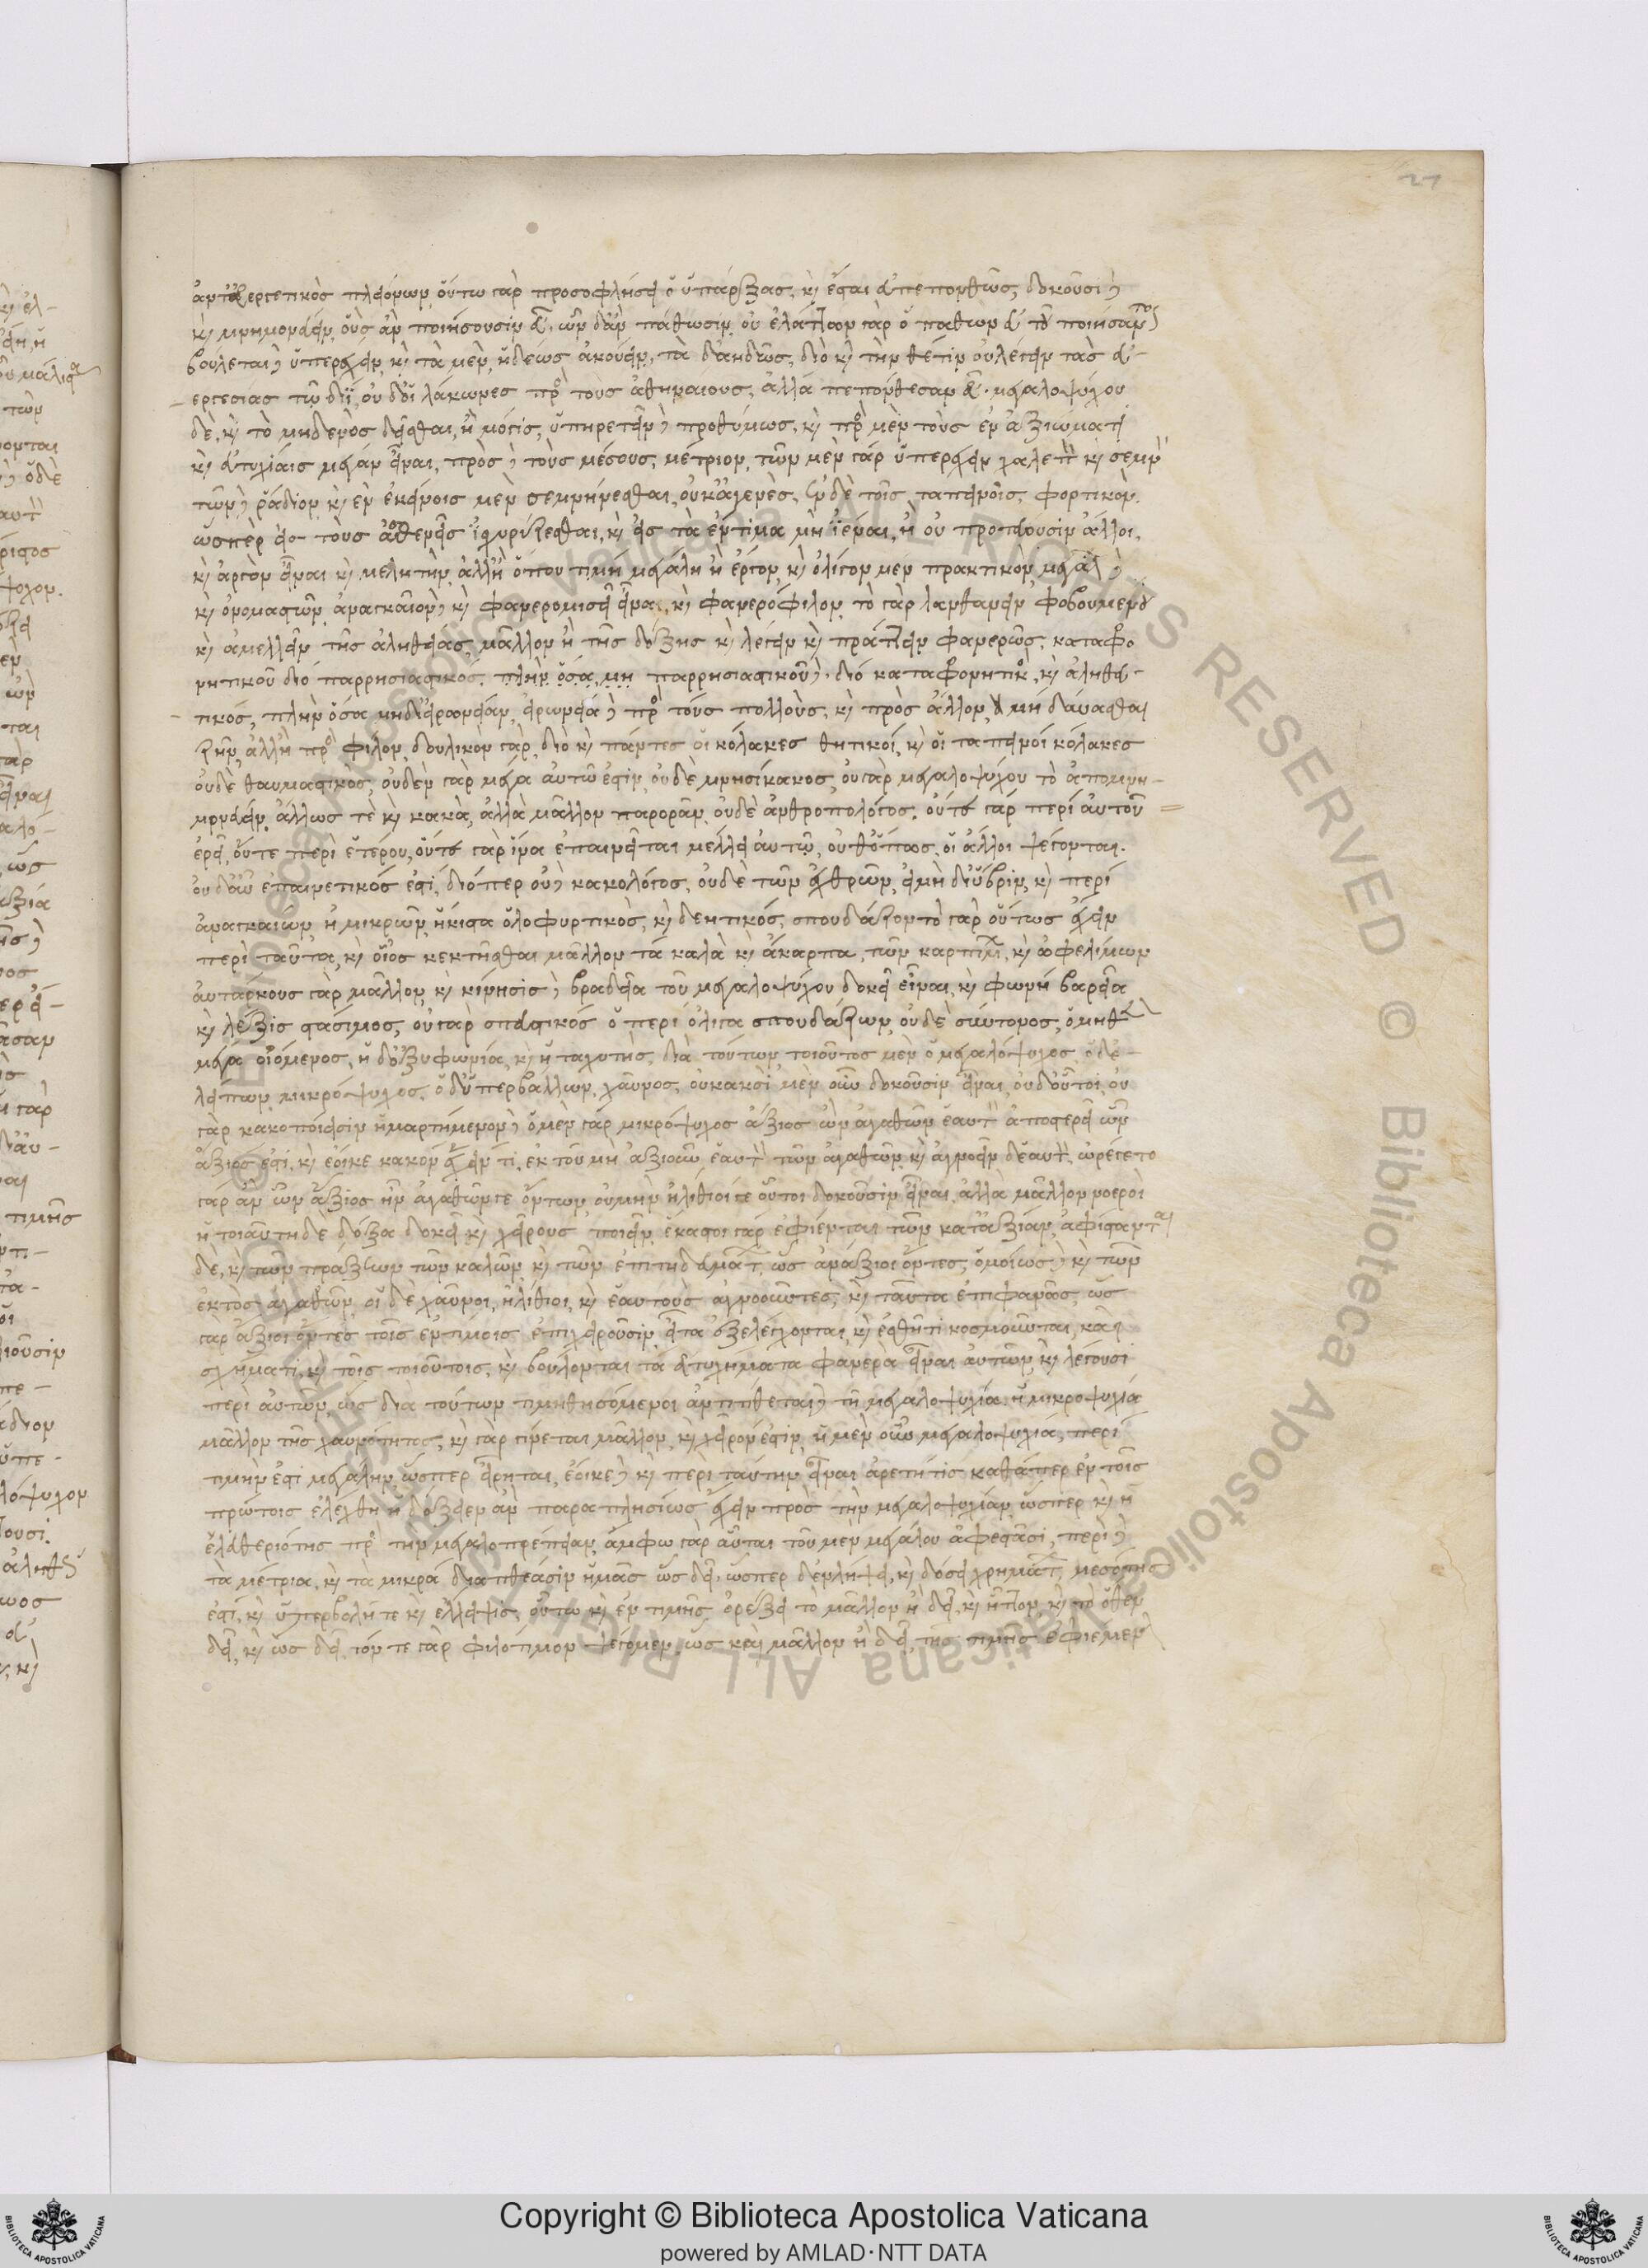 ἀντευεργετικὸς πλειόνων οὕτω γὰρ προσοφλήσει ὁ ὑπάρξας, καὶ ἔσται εὖ πεπονθώς, δοκοῦσι δὲ
καὶ μνημονεύειν οὓς ἂν ποιήσουσιν εὖ, ὧν δ' ἂν πάθωσιν οὔ ἐλάττων γὰρ ὁ παθὼν εὖ τοῦ ποιήσαντος
βούλεται δὲ ὑπερέχειν καὶ τὰ μὲν ἡδέως ἀκούειν, τὰ δ' ἀηδῶς, διὸ καὶ τὴν θέτιν οὐ λέγειν τὰς εὐ-
εργεσίας τῷ διΐ, οὐδ' οἱ λάκωνες πρὸς τοὺς ἀθηναίους, ἀλλὰ πεπόνθεσαν εὖ. μεγαλοψύχου
δὲ, καὶ τὸ μηδενὸς δεῖσθαι, ἢ μόγις, ὑπηρετεῖν δὲ προθύμως, καὶ πρὸς μὲν τοὺς ἐν ἀξιώματι
καὶ εὐτυχίαις μέγαν εἶναι, πρὸς δὲ τοὺς μέσους, μέτριον, τῶν μὲν γὰρ ὑπερέχειν χαλεπὸν καὶ σεμνὸν
τῶν δὲ ῥάδιον καὶ ἐν ἐκείνοις μὲν σεμνύνεσθαι, οὐκ ἀγενὲς, ἐν δὲ τοῖς ταπεινοῖς, φορτικὸν.
ὥσπερ εἰς τοὺς ἀσθενεῖς ἰσχυρίζεσθαι, καὶ εἰς τὰ ἔντιμα μὴ ἰέναι, ἢ οὗ πρωτεύουσιν ἄλλοι,
καὶ ἀργὸν εἶναι καὶ μελητὴν ἀλλ' ἢ ὅπου τιμὴ μεγάλη ἢ ἔργον, καὶ ὀλίγων μὲν πρακτικὸν μεγάλων δὲ
καὶ ὀνομαστῶν ἀναγκαῖον δὲ καὶ φανερομισῆ εἶναι, καὶ φανερόφιλον τὸ γὰρ λανθάνειν φοβουμένου
καὶ ἀμελλεῖν τῆς ἀληθείας, μᾶλλον ἢ τῆς δόξης καὶ λέγειν καὶ πράττειν φανερῶς, καταφρο
νητικοῦ διὸ παρρησιαστικός. πλὴν ὅσα μὴ παρρησιαστικοῦ δὲ. διὸ καταφρονητικὸς, καὶ ἀληθευ-
τικός, πλὴν ὅσα μὴ δι' εἰρωνείαν, εἰρωνεία δὲ πρὸς τοὺς πολλοὺς, καὶ πρὸς ἄλλον μὴ δύνασθαι
ζῆν, ἀλλ' ἢ πρὸς φίλον, δουλικὸν γὰρ, διὸ καὶ πάντες οἱ κόλακες θητικοί, καὶ οἱ ταπεινοί κόλακες
οὐδὲ θαυμαστικὸς, οὐδὲν γὰρ μέγα αὐτῷ ἐστὶν, οὐδὲ μνησίκακος, οὐ γὰρ μεγαλοψύχου τὸ ἀπομνη-
μονεύειν ἄλλως τε καὶ κακὰ, ἀλλὰ μᾶλλον παρορᾶν, οὐδὲ ἀνθρωπολόγος. οὔτε γὰρ περὶ αὐτοῦ
ἐρεῖ, οὔτε περὶ ἑτέρου, οὔτε γὰρ ἵνα ἐπαινεῖται μέλλει αὐτῷ, οὐθ' ὅπως οἱ ἄλλοι ψέγονται.
οὐδ' αὖ ἐπαινετικός ἐστι, διόπερ οὐδὲ κακολόγος, οὐδὲ τῶν ἐχθρῶν, εἰ μὴ δι' ὕβριν, καὶ περὶ
ἀναγκαίων ἢ μικρῶν, ἥκιστα ὀλοφυρτικὸς, καὶ δεητικός, σπουδάζοντο γὰρ οὕτως ἔχειν
περὶ ταῦτα, καὶ οἷος κεκτῆσθαι μᾶλλον τὰ καλὰ καὶ ἄκαρπα, τῶν καρπίμων, καὶ ὠφελίμων
αὐτάρκους γὰρ μᾶλλον, καὶ κίνησις δὲ βραδεῖα τοῦ μεγαλοψύχου δοκεῖ εἶναι, καὶ φωνὴ βαρεῖα
καὶ λέξις στάσιμος, οὐ γὰρ σπευστικός ὁ περὶ ὀλίγα σπουδάζων, οὐδὲ σύντονος, ὁ μηθὲν
μέγα οἰόμενος, ἡ δ' ὀξυφωνία, καὶ ἡ ταχυτὴς, διὰ τούτων τοιοῦτος μὲν ὁ μεγαλόψυχος, ὁ δ' ἐ-
λείπων μικρόψυχος, ὁ δ' ὑπερβάλλων, χαῦνος, οὐ κακοὶ μὲν οὖν δοκοῦσιν εἶναι, οὐδ' οὗτοι, οὐ
γὰρ κακοποιοί εἰσιν ἡμαρτημένον δὲ ὁ μὲν γὰρ μικρόψυχος ἄξιος ὢν ἀγαθῶν ἑαυτὸν ἀποστερεῖ ὧν
ἄξιος ἐστί, καὶ ἔοικε κακὸν ἔχειν τι, ἐκ τοῦ μὴ ἀξιοῦν ἑαυτὸν τῶν ἀγαθῶν, καὶ ἀγνοεῖν δ' ἑαυτὸν, ὠρέγετο
γὰρ ἂν ὧν ἄξιος ἦν ἀγαθῶν γε ὄντων, οὐ μὴν ἠλίθιοί γε οὗτοι δοκοῦσιν εἶναι, ἀλλὰ μᾶλλον νοεροὶ
ἡ τοιαύτη δὲ δόξα δοκεῖ καὶ χείρους ποιεῖν, ἕκαστοι γὰρ ἐφίενται τῶν κατ' ἀξίαν, ἀφίστανται
δὲ, καὶ τῶν πράξεων τῶν καλῶν, καὶ τῶν ἐπιτηδευμάτων, ὡς ἀνάξιοι ὄντες, ὁμοίως δὲ καὶ τῶν
ἐκτὸς ἀγαθῶν, οἱ δὲ χαῦνοι, ἠλίθιοι, καὶ ἑαυτοὺς ἀγνοοῦντες, καὶ ταῦτα ἐπιφανῶς, ὡς
γὰρ ἄξιοι ὄντες τοῖς ἐντίμοις ἐπιχειροῦσιν, εἶτα ἐξελέγχονται, καὶ ἐσθῆτι κοσμοῦνται, καὶ
σχήματι, καὶ τοῖς τοιούτοις, καὶ βούλονται τὰ εὐτυχήματα φανερὰ εἶναι αὐτῶν, καὶ λέγουσι
περὶ αὐτῶν, ὡς διὰ τούτων τιμηθησόμενοι ἀντιτίθεται δὲ τῇ μεγαλοψυχίᾳ ἡ μικροψυχία
μᾶλλον τῆς χαυνότητος, καὶ γὰρ γίνεται μᾶλλον, καὶ χεῖρον ἐστίν, ἡ μὲν οὖν μεγαλοψυχία, περὶ
τιμήν ἐστι μεγάλην ὥσπερ εἴρηται, ἔοικε δὲ καὶ περὶ ταύτην εἶναι ἀρετή τις καθάπερ ἐν τοῖς
πρώτοις ἐλέχθη ἣ δόξειεν ἂν παραπλησίως ἔχειν πρὸς τὴν μεγαλοψυχίαν, ὥσπερ καὶ ἡ
ἐλευθεριότης πρὸς τὴν μεγαλοπρέπειαν, ἄμφω γὰρ αὗται τοῦ μὲν μεγάλου ἀφεστᾶσι, περὶ δὲ
τὰ μέτρια, καὶ τὰ μικρὰ διατιθέασιν ἡμᾶς ὡς δεῖ, ὥσπερ δ' ἐν λήψει, καὶ δόσει χρημάτων μεσότης
ἐστί, καὶ ὑπερβολή τε καὶ ἔλλειψις, οὕτω καὶ ἐν τιμῆς ὀρέξει τὸ μᾶλλον ἢ δεῖ, καὶ ἧττον, καὶ τὸ ὅθεν
δεῖ, καὶ ὡς δεῖ. τόν τε γὰρ φιλότιμον ψέγομεν, ὡς καὶ μᾶλλον ἢ δεῖ, τῆς τιμῆς ἐφιέμενον
Copyright © Biblioteca Apostolica Vaticana
powered by AMLAD·NTT DATA